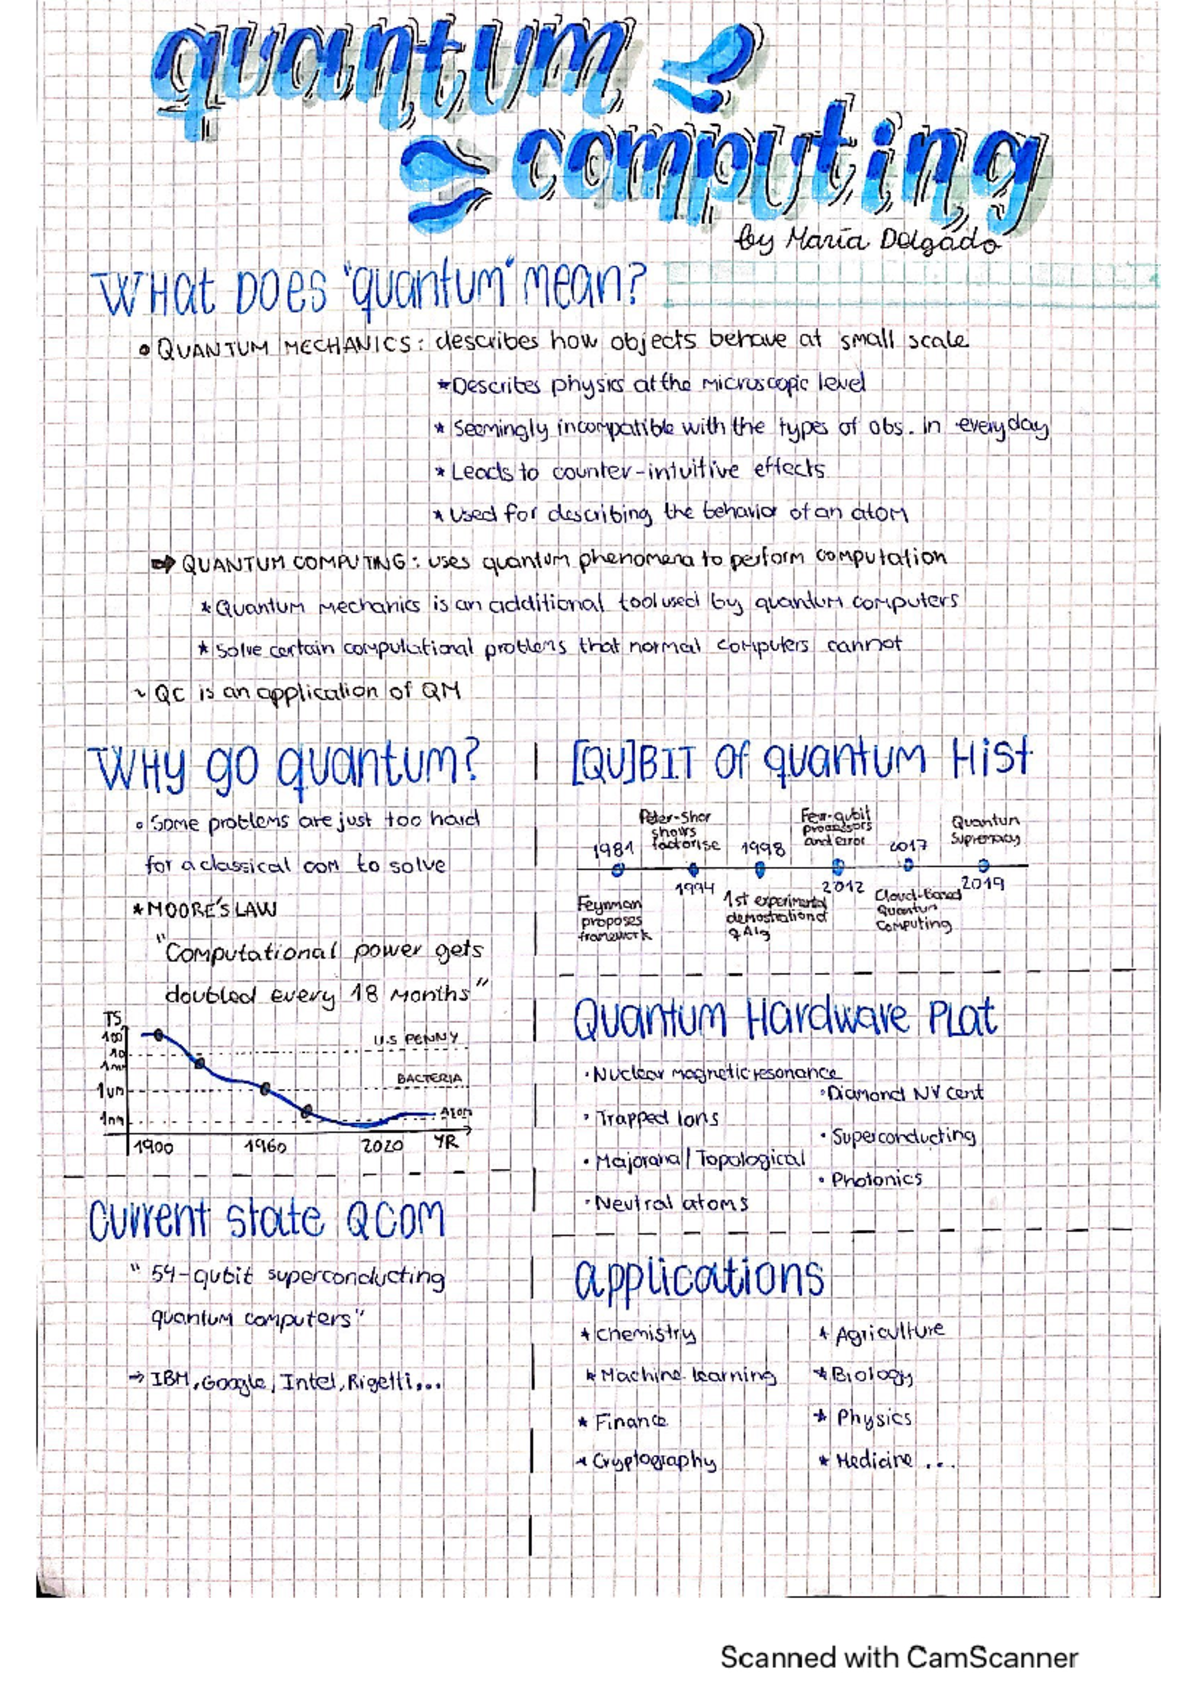 quantum
computing
by María Delgado
WHat DOES "quantum" mean?
QUANTUM MECHANICS: describes how objects behave at small scale
*Describes physics at the microscopic level
* Seemingly incompatible with the types of obs. in everyday
* Leads to counter-intuitive effects
* Used for describing the behavior of an atom
⇒ QUANTUM COMPUTING: uses quantum phenomena to perform computation
* Quantum Mechanics is an additional tool used by quantum computers
* Solve certain computational problems that normal computers cannot
~ QC is an application of QM
WHy go quantum?
• Some problems are just too hard
for a classical com to solve
* MOORE'S LAW
"Computational power gets
doubled every 18 Months"
TS
100
10
1mm
1um
1nm
U.S PENNY
BACTERIA
Atom
1900 1960 2020 YR
Current state QCOM
" 54-qubit superconducting
quantum computers"
→ IBM, Google, Intel, Rigetti...
[QU]BIT Of quantum Hist
1981
Feynman
proposes
framework
Peter-Shor
shows
factorise
1994
1998
1st experimental
demostration of
q Alg
Few-qubit
processors
and error
2012
2017
Cloud-based
Quantum
Computing
Quantun
Supremacy
2019
Quantum Hardware PLat
• Nuclear magnetic resonance
• Diamond NV cent
• Trapped Ions
• Superconducting
• Majorana / Topological
• Photonics
• Neutral atoms
applications
* Chemistry
* Agriculture
* Machine learning
* Biology
* Finance
* Physics
* Cryptography
* Medicine ...
Scanned with CamScanner